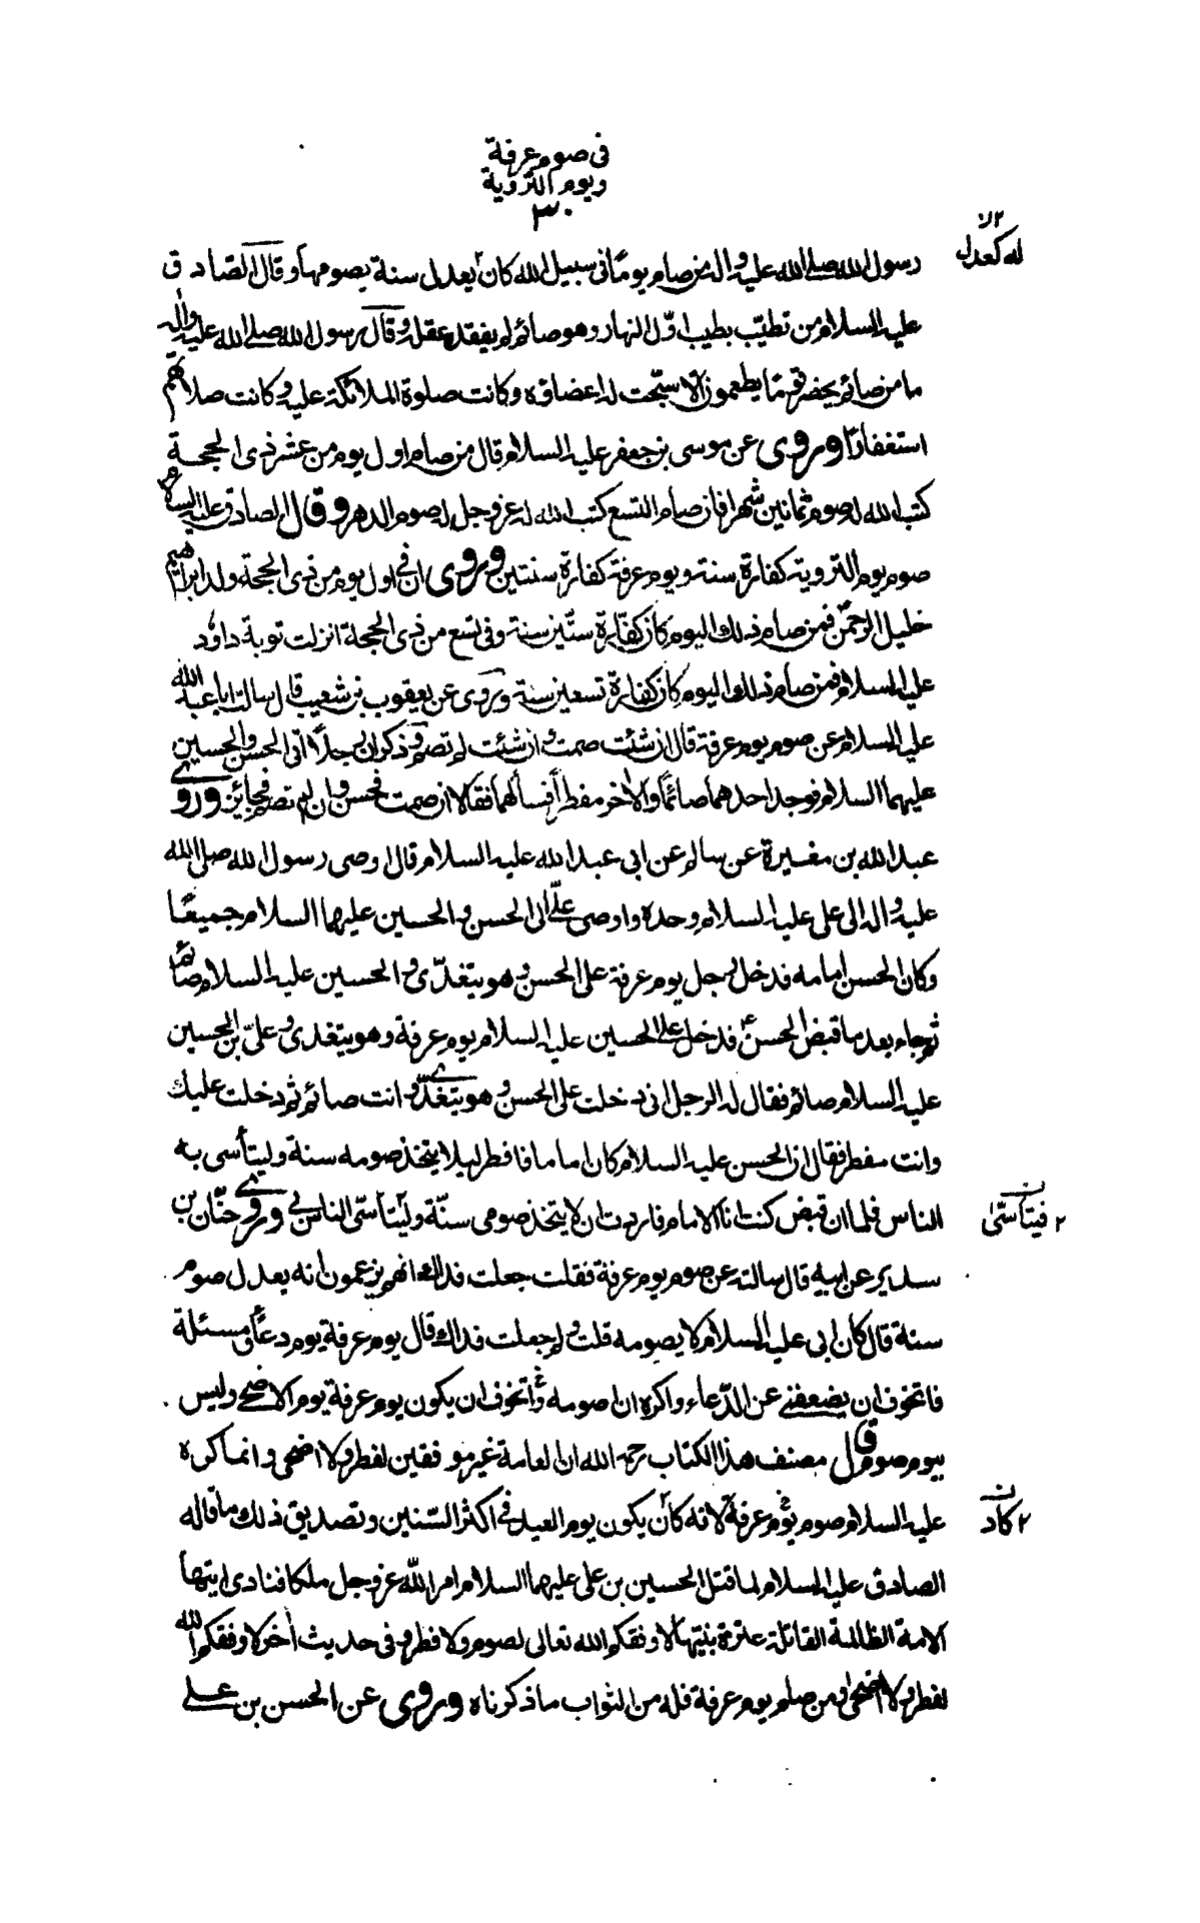 في صوم عرفة
ويوم التروية
٣٠
٢ لا
له كعدل
رسول الله صلى الله عليه واله من صام يوما في سبيل الله كان يعدل سنة يصومها وقال الصادق
عليه السلام من تطيب بطيب اول النهار وهو صائم لم يفقد عقله وقال رسول الله صلى الله عليه واله
ما من صائم يحضر قوما يطعمون الا سبحت له اعضاؤه وكانت صلوة الملائكة عليه وكانت صلاتهم
استغفارا وروى عن موسى بن جعفر عليه السلام قال من صام اول يوم من عشر ذى الحجة
كتب الله له صوم ثمانين شهرا فان صام التسع كتب الله له عز وجل له صوم الدهر وقال الصادق عليه السلام
صوم يوم التروية كفارة سنة ويوم عرفة كفارة سنتين وروى ان في اول يوم من ذى الحجة ولد ابراهيم
خليل الرحمن فمن صام ذلك اليوم كان كفارة ستين سنة وفي تسع من ذى الحجة انزلت توبة داود
عليه السلام فمن صام ذلك اليوم كان كفارة تسعين سنة وروى عن يعقوب بن شعيب قال سالت ابا عبد الله
عليه السلام عن صوم يوم عرفة قال ان شئت صمت وان شئت لم تصم وذكر ان رجلا اتى الحسن والحسين
عليهما السلام فوجد احدهما صائما والاخر مفطرا فسألهما فقالا ان صمت فحسن وان لم تصم فجائز وروى
عبد الله بن مغيرة عن سالم عن ابي عبد الله عليه السلام قال اوصى رسول الله صلى الله
عليه واله الى على عليه السلام وحده واوصى على الى الحسن والحسين عليهما السلام جميعا
وكان الحسن امامه فدخل رجل يوم عرفة على الحسن وهو يتغدى والحسين عليه السلام صائم
ثم جاء بعد ما قبض الحسن ع فدخل على الحسين عليه السلام يوم عرفة وهو يتغدى وعلى بن الحسين
عليه السلام صائم فقال له الرجل انى دخلت على الحسن وهو يتغدى وانت صائم ثم دخلت عليك
وانت مفطر فقال ان الحسن عليه السلام كان اماما فافطر ليلا يتخذ صومه سنة وليتأسى به
الناس فلما ان قبض كنت انا الامام فاردت ان لا يتخذ صومى سنة وليتأسى الناس بى وروى حنان بن
٢ فيتأسى ن
سدير عن ابيه قال سالته عن صوم يوم عرفة فقلت جعلت فداك انهم يزعمون انه يعدل صوم
سنة قال كان ابى عليه السلام لا يصومه قلت ولم جعلت فداك قال يوم عرفة يوم دعاء ومسئلة
فاتخوف ان يضعفني عن الدعاء واكره ان اصومه واتخوف ان يكون يوم عرفة يوم الاضحى وليس
بيوم صوم قال مصنف هذا الكتاب رحمه الله ان العامة غير موفقين لفطر ولا اضحى وانما كره
عليه السلام صوم يوم عرفة لانه كان يكون يوم العيد في اكثر السنين وتصديق ذلك ما قاله
٢ كاد ن
الصادق عليه السلام لما قتل الحسين بن على عليهما السلام امر الله عز وجل ملكا فنادى ايتها
الامة الظالمة القاتلة عترة نبيها لا وفقكم الله تعالى لصوم ولا فطر وفى حديث اخر لا وفقكم الله
لفطر ولا اضحى ومن صام يوم عرفة فله من الثواب ما ذكرناه وروى عن الحسن بن على